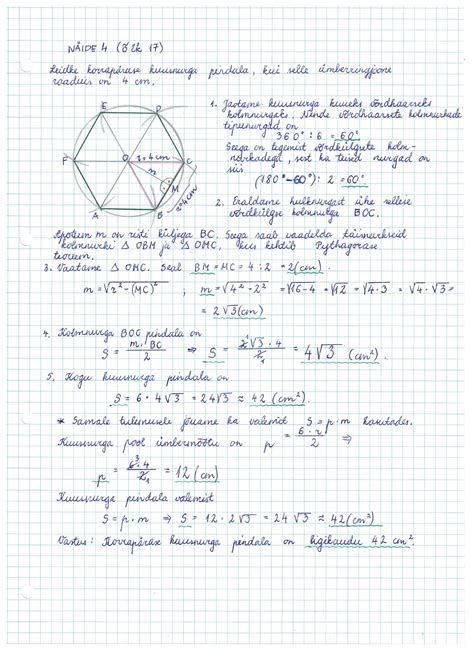 NÄIDE 4 (Õ lk 17)
Leidke korrapärase kuusnurga pindala, kui selle ümberringjoone
raadius on 4 cm.
E
D
F
O
r=4cm
C
m
M
r=4cm
A
B
1. Jaotame kuusnurga kuueks võrdhaarseks
kolmnurgaks. Nende võrdhaarsete kolmnurkade
tipunurgad on
360° : 6 = 60°
Seega on tegemist võrdkülgsete kolm-
nurkadega, sest ka teised nurgad on
siis
(180° - 60°) : 2 = 60°
2. Eraldame hulknurgast ühe sellise
võrdkülgse kolmnurga BOC.
Apoteem m on risti küljega BC. Seega saab vaadelda täisnurkseid
kolmnurki △ OBM ja △ OMC, kus kehtib Pythagorase
teoreem.
3. Vaatame △ OMC. Seal BM = MC = 4 : 2 = 2(cm).
m = √r² - (MC)² ; m = √4² - 2² = √16-4 = √12 = √4·3 = √4 · √3 =
= 2√3 (cm)
4. Kolmnurga BOC pindala on
S = m · BC / 2 ⇒ S = 2√3 · 4 / 2 = 4√3 (cm²).
5. Kogu kuusnurga pindala on
S = 6 · 4√3 = 24√3 ≈ 42 (cm²).
* Samale tulemusele jõuame ka valemit S = p · m kasutades.
Kuusnurga pool ümbermõõtu on p = 6 · r / 2 ⇒
p = 6 · 4 / 2 = 12 (cm)
Kuusnurga pindala valemist
S = p · m ⇒ S = 12 · 2√3 = 24√3 ≈ 42 (cm²)
Vastus: Korrapärase kuusnurga pindala on ligikaudu 42 cm².